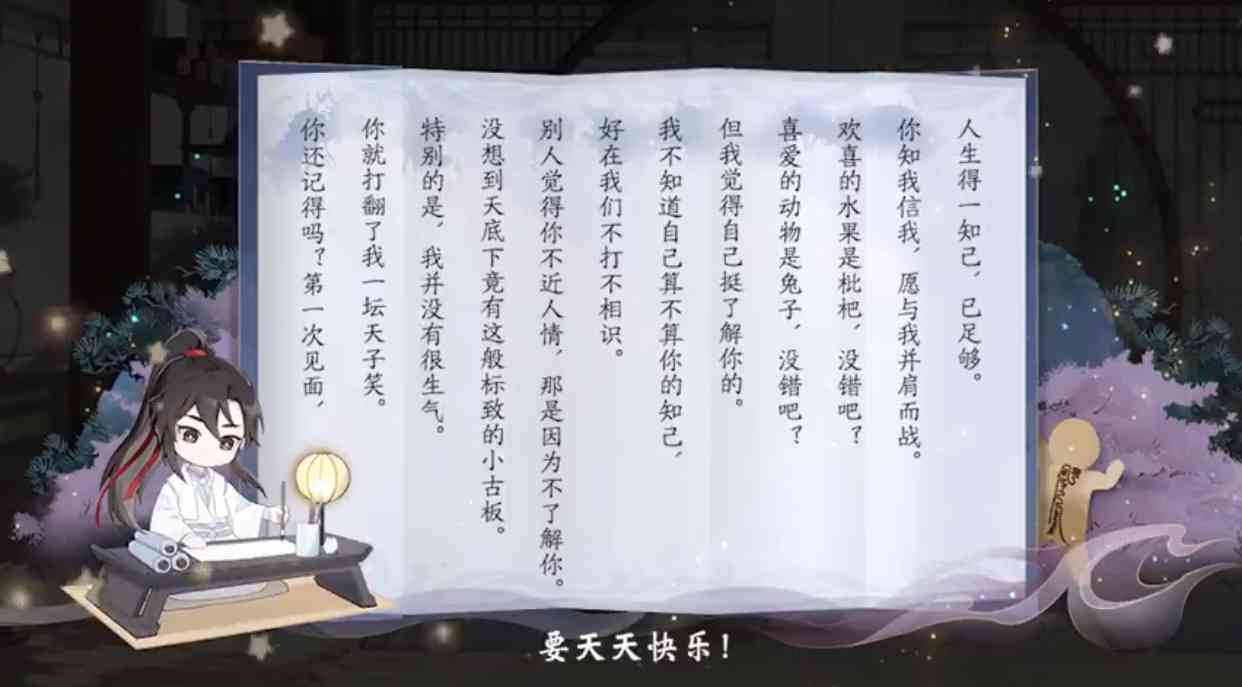 你还记得吗？第一次见面，
你就打翻了我一坛天子笑。
特别的是，我并没有很生气。
没想到天底下竟有这般标致的小古板。
别人觉得你不近人情，那是因为不了解你。
好在我们不打不相识。
我不知道自己算不算你的知己，
但我觉得自己挺了解你的。
喜爱的动物是兔子，没错吧？
欢喜的水果是枇杷，没错吧？
你知我信我，愿与我并肩而战。
人生得一知己，已足够。
要天天快乐！